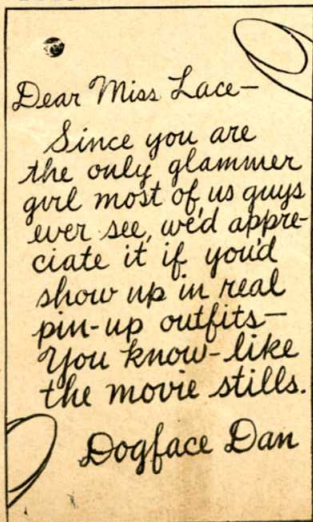 Dear Miss Lace—
Since you are
the only glammer
girl most of us guys
ever see, we'd appre-
ciate it if you'd
show up in real
pin-up outfits—
You know-like
the movie stills.
Dogface Dan